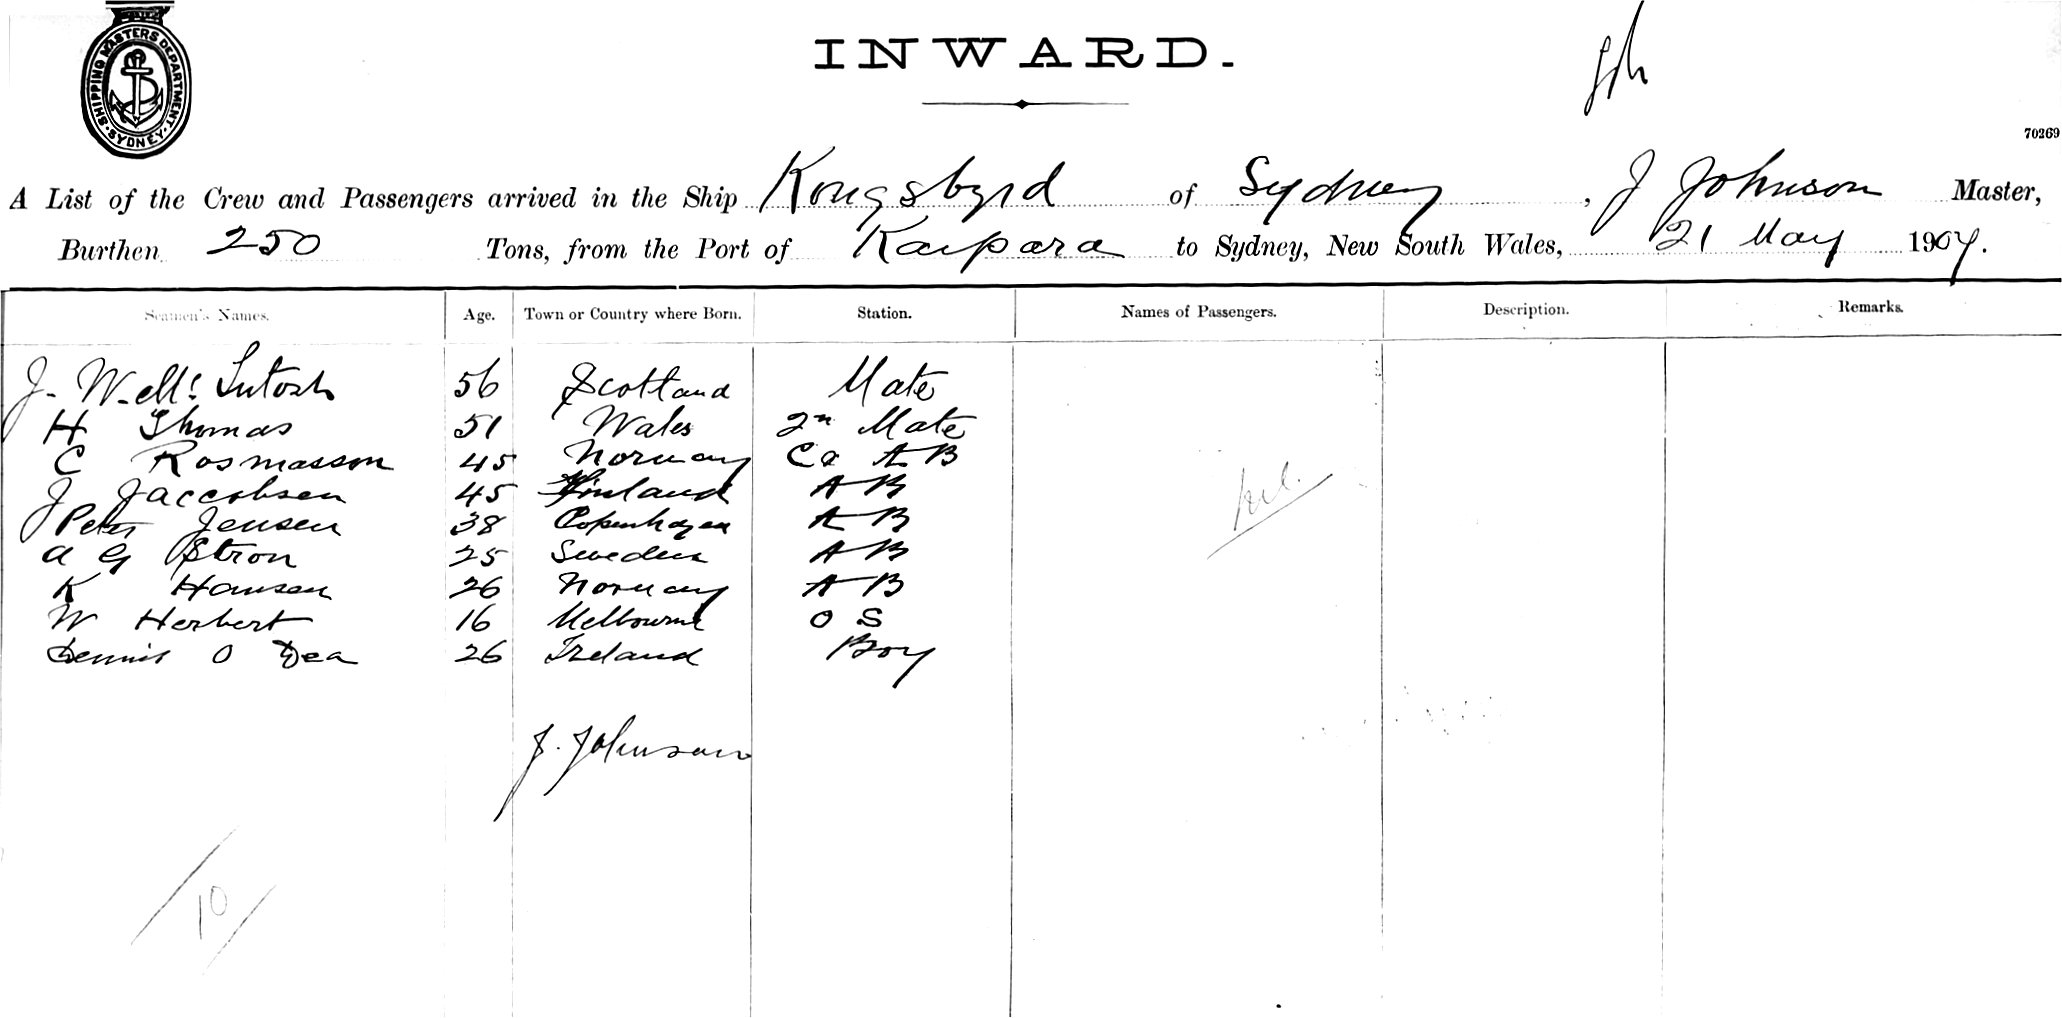 SHIPPING MASTERS DEPARTMENT. SYDNEY.
INWARD.
70269
A List of the Crew and Passengers arrived in the Ship Kongsbyrd of Sydney, J Johnson Master,
Burthen 250 Tons, from the Port of Kaipara to Sydney, New South Wales, 21 May 1904.
Seamen's Names. Age. Town or Country where Born. Station. Names of Passengers. Description. Remarks.
J. W. Mc Intosh 56 Scotland Mate
H Thomas 51 Wales 2n Mate
C Rosmasson 45 Norway Co A B
J Jaccobsen 45 Finland A B
Peter Jensen 38 Copenhagen A B
A G Stron 25 Sweden A B
K Hansen 26 Norway A B
W Herbert 16 Melbourne O S
Dennis O Dea 26 Ireland Boy
nil.
J. Johnson
10